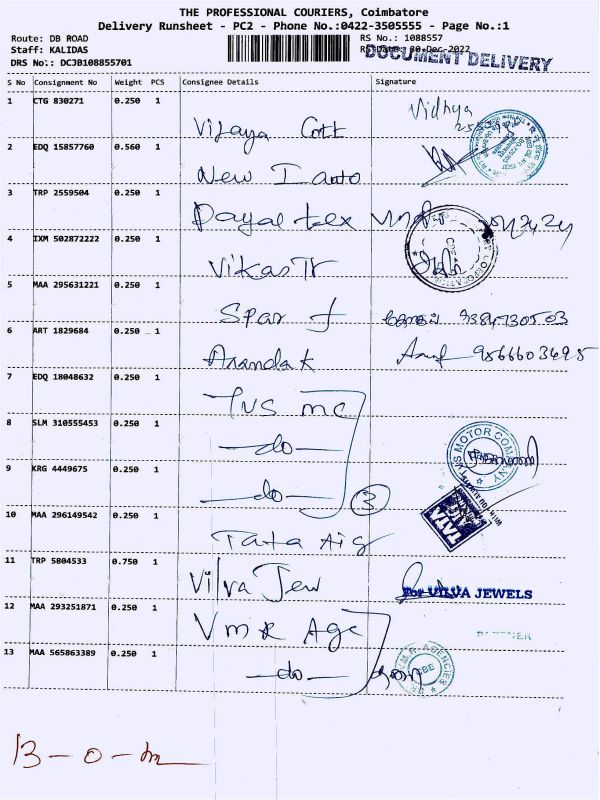 THE PROFESSIONAL COURIERS, Coimbatore
Delivery Runsheet - PC2 - Phone No.:0422-3505555 - Page No.:1
Route: DB ROAD RS No.: 1088557
Staff: KALIDAS RS Date: 20-Dec-2022
DRS No: DCJB108855701 DOCUMENT DELIVERY
S No Consignment No Weight PCS Consignee Details Signature
1 CTG 830271 0.250 1 Vidhya
Vijaya Cott
2 EDQ 15857760 0.560 1
New I Auto
3 TRP 2559504 0.250 1
Payal tex
4 IXM 502872222 0.250 1
Vikas Tr
5 MAA 295631221 0.250 1
Spar J 9384730503
6 ART 1829684 0.250 1
Ananda K 9566603495
7 EDQ 18048632 0.250 1
TVS mc
8 SLM 310555453 0.250 1
-do- TVS MOTOR COMPANY
9 KRG 4449675 0.250 1
-do- 3
10 MAA 296149542 0.250 1
Tata Aig
11 TRP 5804533 0.750 1
Vilva Jew For VILVA JEWELS
12 MAA 293251871 0.250 1
VMR Age PARTNER
13 MAA 565863389 0.250 1
-do- V.M.R. AGENCIES CBE
13-0-m